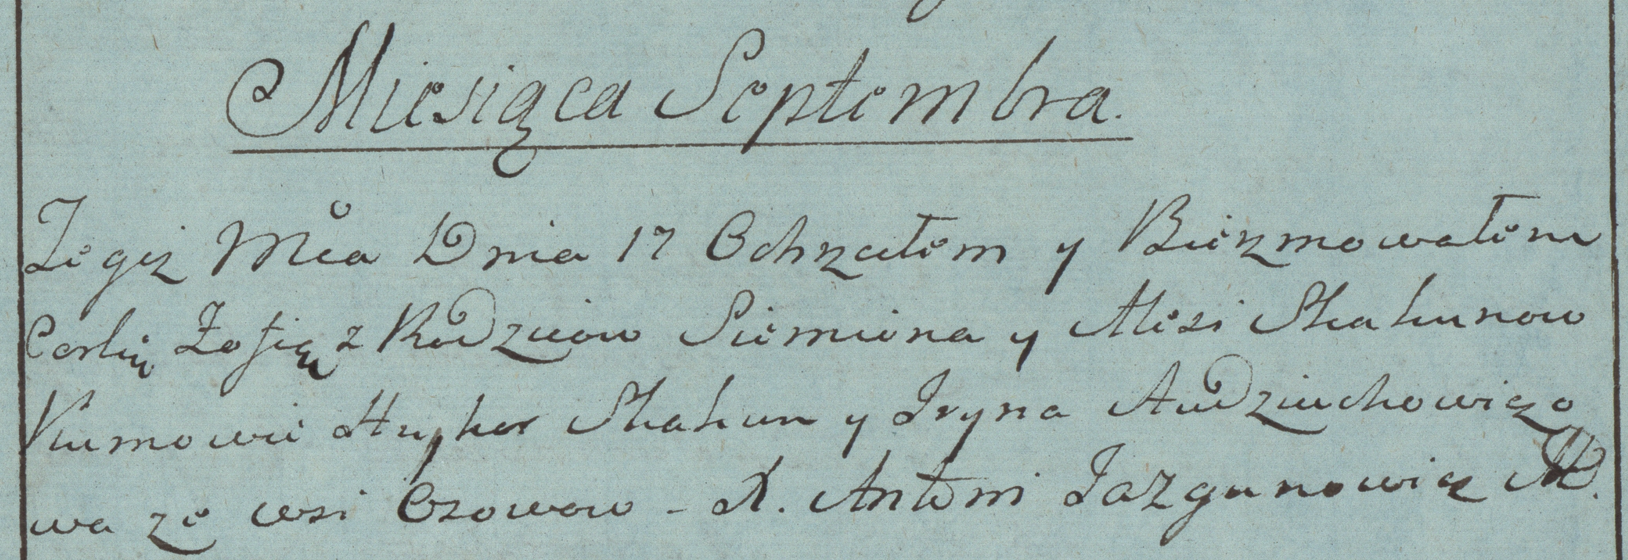 Miesiąca Septembra.
Tegoż Mca Dnia 17 Ochrzciłem y Bierzmowałem
Corkię Zofią z Rodziców Siemiona y Alesi Skakunow
Kumowie Hryhor Skakun y Iryna Audziuchowiczo
wa ze wsi Osowow - X. Antoni Jazgunowicz